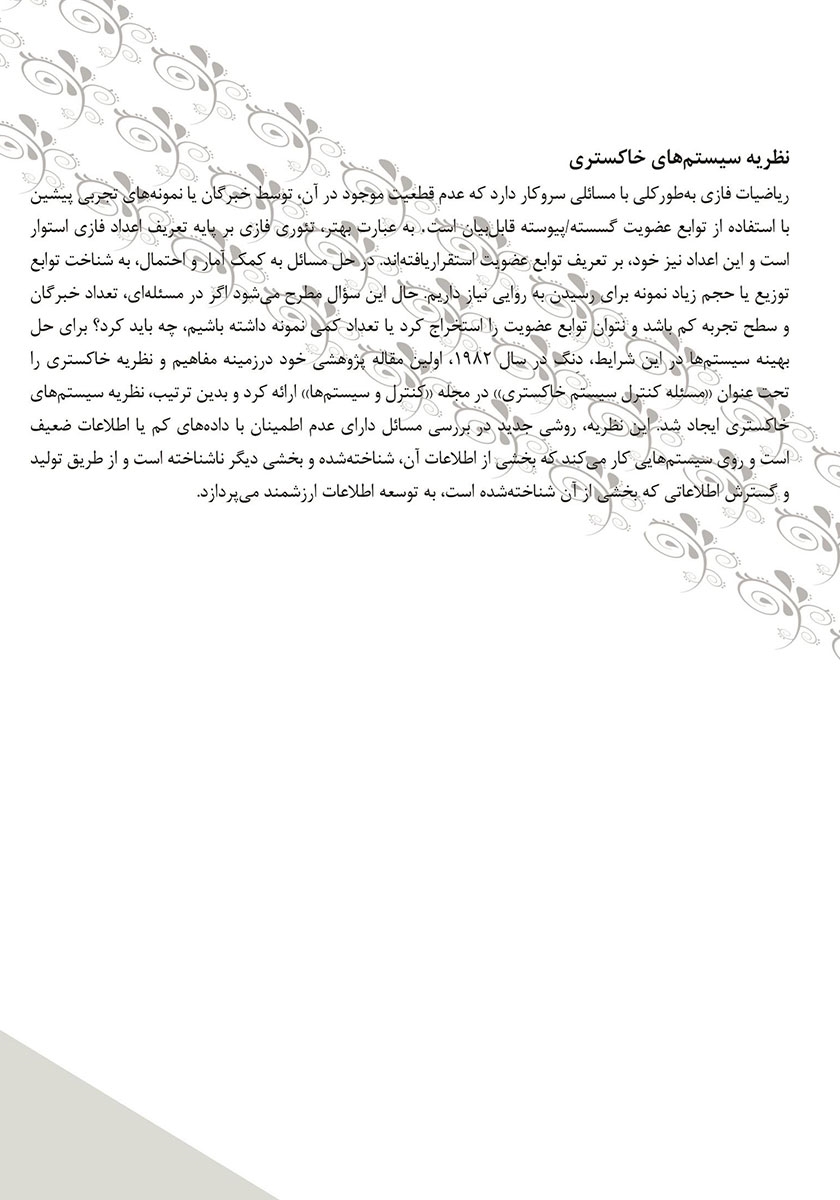 نظریه سیستم‌های خاکستری
ریاضیات فازی به‌طورکلی با مسائلی سروکار دارد که عدم قطعیت موجود در آن، توسط خبرگان یا نمونه‌های تجربی پیشین
با استفاده از توابع عضویت گسسته/پیوسته قابل‌بیان است. به عبارت بهتر، تئوری فازی بر پایه تعریف اعداد فازی استوار
است و این اعداد نیز خود، بر تعریف توابع عضویت استقراریافته‌اند. در حل مسائل به کمک آمار و احتمال، به شناخت توابع
توزیع یا حجم زیاد نمونه برای رسیدن به روایی نیاز داریم. حال این سؤال مطرح می‌شود اگر در مسئله‌ای، تعداد خبرگان
و سطح تجربه کم باشد و نتوان توابع عضویت را استخراج کرد یا تعداد کمی نمونه داشته باشیم، چه باید کرد؟ برای حل
بهینه سیستم‌ها در این شرایط، دنگ در سال ۱۹۸۲، اولین مقاله پژوهشی خود درزمینه مفاهیم و نظریه خاکستری را
تحت عنوان «مسئله کنترل سیستم خاکستری» در مجله «کنترل و سیستم‌ها» ارائه کرد و بدین ترتیب، نظریه سیستم‌های
خاکستری ایجاد شد. این نظریه، روشی جدید در بررسی مسائل دارای عدم اطمینان با داده‌های کم یا اطلاعات ضعیف
است و روی سیستم‌هایی کار می‌کند که بخشی از اطلاعات آن، شناخته‌شده و بخشی دیگر ناشناخته است و از طریق تولید
و گسترش اطلاعاتی که بخشی از آن شناخته‌شده است، به توسعه اطلاعات ارزشمند می‌پردازد.